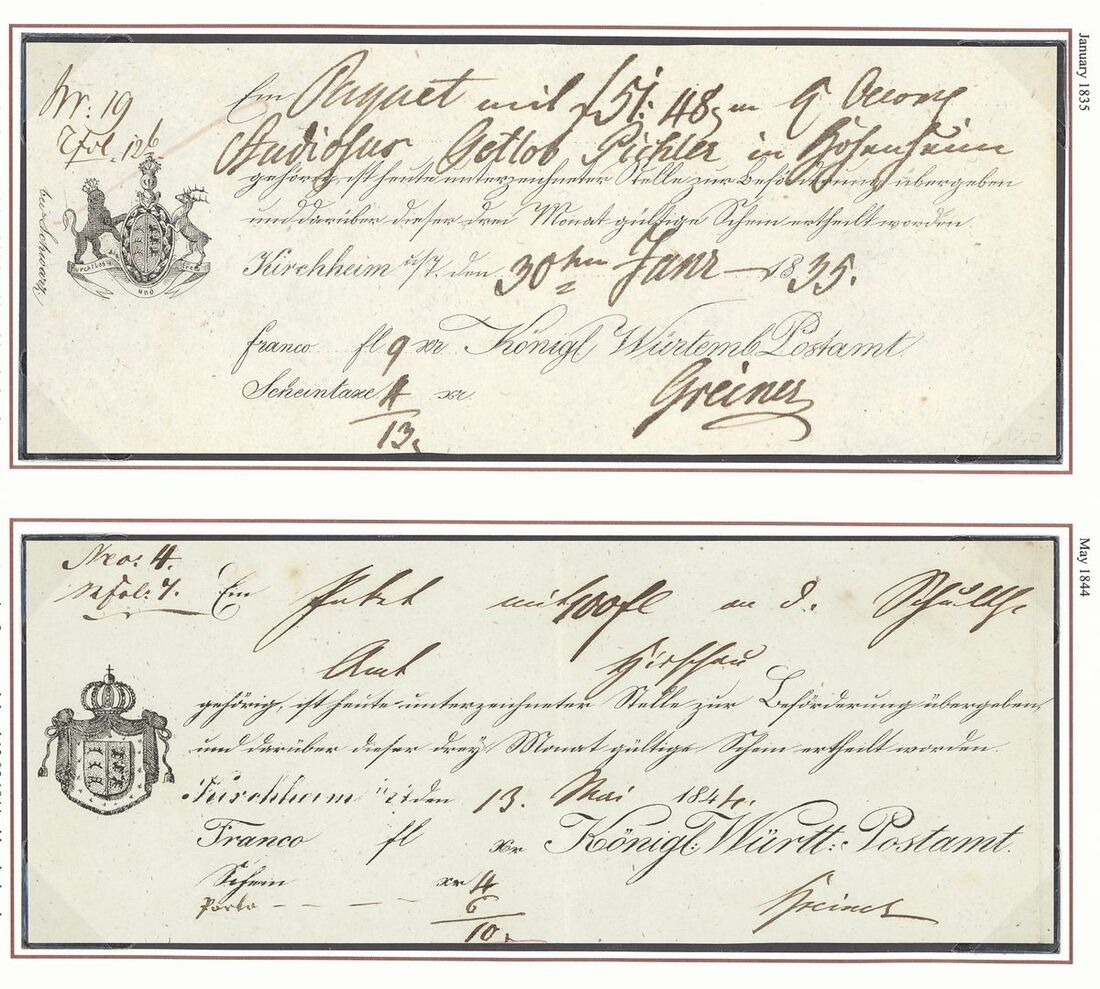 January 1835
Nr: 19
Fol. 126
Ein Paquet mit f 51. 48 an
Studiosus Gotlob Pichler in Hohenheim
gehörig, ist heute unterzeichneter Stelle zur Beförderung übergeben
und darüber dieser drei Monat gültige Schein ertheilt worden.
Kirchheim u/T. den 30ten Janr 1835.
furchtlos und trew
franco fl 9 xr Königl Würtemb. Postamt
Scheintaxe 4 xr
Greiner
13
May 1844
Nro: 4.
Fol: 7.
Ein Paket mit 100 fl an d. Schulth.
Amt Hirschau
gehörig, ist heute unterzeichneter Stelle zur Beförderung übergeben,
und darüber dieser drey Monat gültige Schein ertheilt worden.
Kirchheim u/t den 13. Mai 1844.
Franco fl xr Königl: Württ: Postamt.
Schein xr 4
Porto - - - - 6
Greiner
10